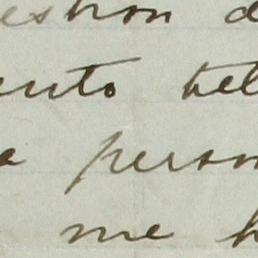 estion d
ento bel
a person
me h